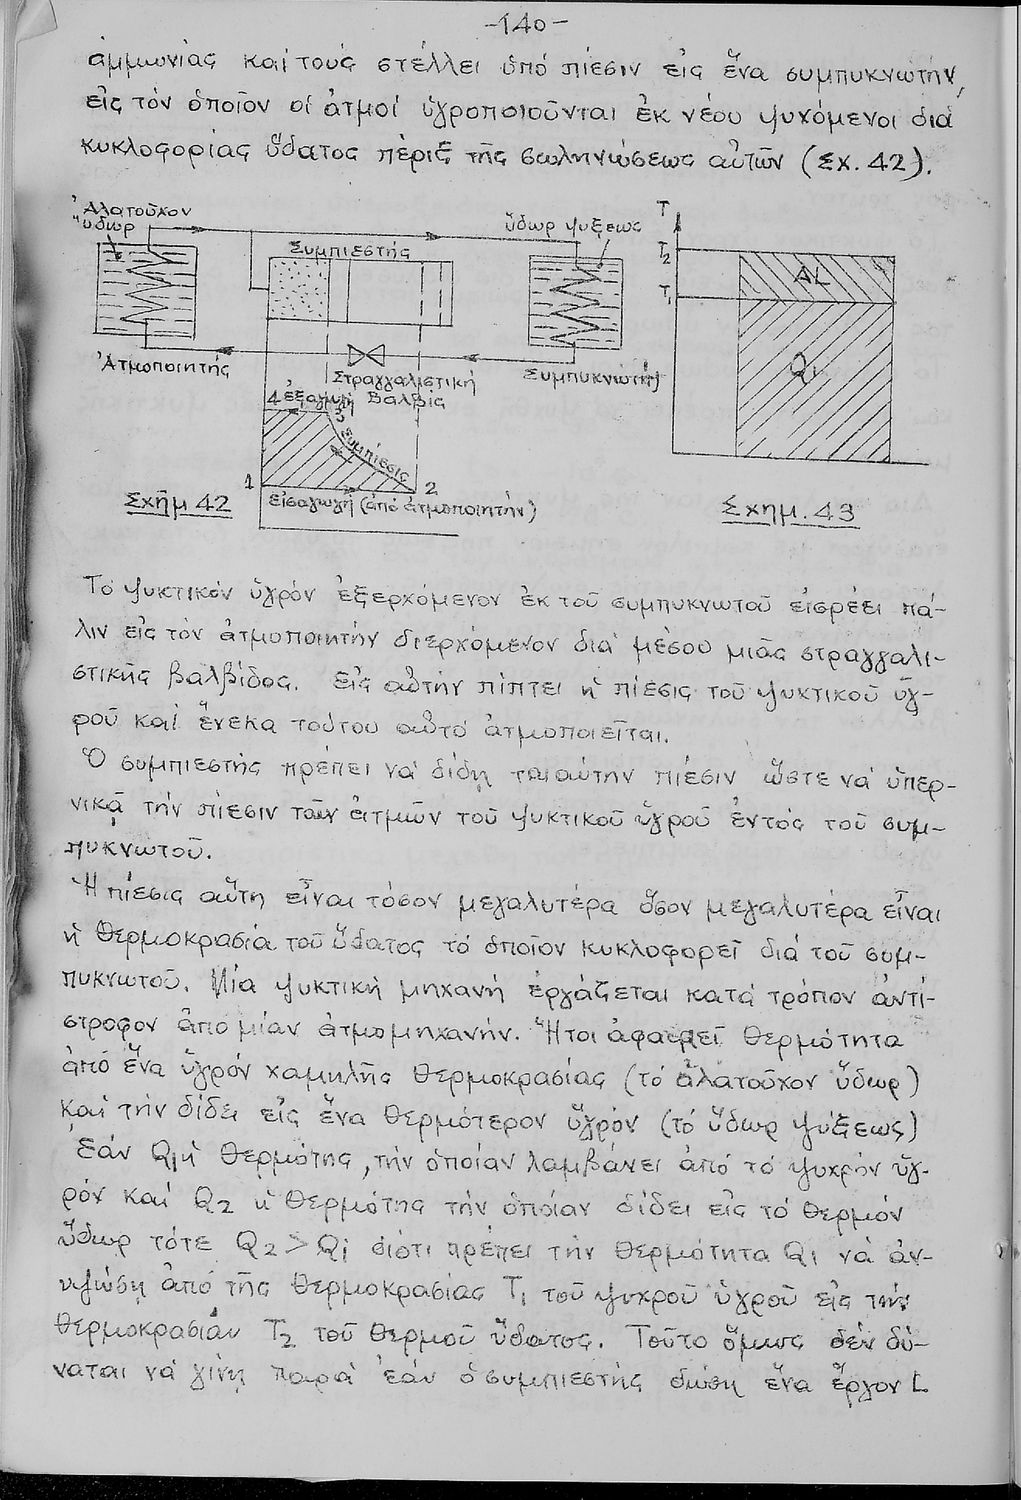 -140-
ἀμμωνίας καί τούς στέλλει ὑπό πίεσιν εἰς ἕνα συμπυκνωτήν,
εἰς τόν ὁποῖον οἱ ἀτμοί ὑγροποιοῦνται ἐκ νέου ψυχόμενοι διά
κυκλοφορίας ὕδατος πέριξ τῆς σωληνώσεως αὐτῶν (Σχ. 42).
Ἁλατοῦχον
ὕδωρ
Συμπιεστής
ὕδωρ ψύξεως
Ἀτμοποιητής
Στραγγαλιστική
Βαλβίς
Συμπυκνωτής
4 ἐξαγωγή
3
συμπίεσις
1
2
εἰσαγωγή (ἀπό ἀτμοποιητήν)
Σχῆμ 42
T
T2
T1
AL
Q1
Σχημ. 43
Τό ψυκτικόν ὑγρόν ἐξερχόμενον ἐκ τοῦ συμπυκνωτοῦ εἰσρέει πά-
λιν εἰς τόν ἀτμοποιητήν διερχόμενον διά μέσου μιᾶς στραγγαλι-
στικῆς βαλβίδος. Εἰς αὐτήν πίπτει ἡ πίεσις τοῦ ψυκτικοῦ ὑγ-
ροῦ καί ἕνεκα τούτου αὐτό ἀτμοποιεῖται.
Ὁ συμπιεστής πρέπει νά δίδῃ τοιαύτην πίεσιν ὥστε νά ὑπερ-
νικᾷ τήν πίεσιν τῶν ἀτμῶν τοῦ ψυκτικοῦ ὑγροῦ ἐντός τοῦ συμ-
πυκνωτοῦ.
Ἡ πίεσις αὕτη εἶναι τόσον μεγαλυτέρα ὅσον μεγαλυτέρα εἶναι
ἡ θερμοκρασία τοῦ ὕδατος τό ὁποῖον κυκλοφορεῖ διά τοῦ συμ-
πυκνωτοῦ. Μία ψυκτική μηχανή ἐργάζεται κατά τρόπον ἀντί-
στροφον ἀπό μίαν ἀτμομηχανήν. Ἤτοι ἀφαιρεῖ θερμότητα
ἀπό ἕνα ὑγρόν χαμηλῆς θερμοκρασίας (τό ἁλατοῦχον ὕδωρ)
καί τήν δίδει εἰς ἕνα θερμότερον ὑγρόν (τό ὕδωρ ψύξεως)
Ἐάν Q1 ἡ θερμότης, τήν ὁποίαν λαμβάνει ἀπό τό ψυχρόν ὑγ-
ρόν καί Q2 ἡ θερμότης τήν ὁποίαν δίδει εἰς τό θερμόν
ὕδωρ τότε Q2 > Q1 διότι πρέπει τήν θερμότητα Q1 νά ἀν-
υψώσῃ ἀπό τῆς θερμοκρασίας T1 τοῦ ψυχροῦ ὑγροῦ εἰς τήν
θερμοκρασίαν T2 τοῦ θερμοῦ ὕδατος. Τοῦτο ὅμως δέν δύ-
ναται νά γίνῃ παρά ἐάν ὁ συμπιεστής δώσῃ ἕνα ἔργον L